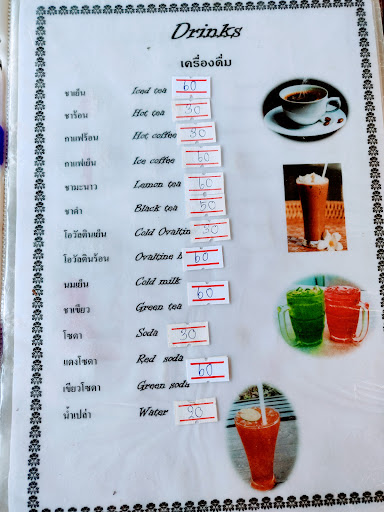 Drinks
เครื่องดื่ม
ชาเย็น Iced tea 60
ชาร้อน Hot tea 30
กาแฟร้อน Hot coffee 30
กาแฟเย็น Ice coffee 60
ชามะนาว Lemon tea 60
ชาดำ Black tea 50
โอวัลตินเย็น Cold Ovaltine 50
โอวัลตินร้อน Ovaltine h 60
นมเย็น Cold milk
60
ชาเขียว Green tea
โซดา Soda 30
แดงโซดา Red soda
60
เขียวโซดา Green soda
น้ำเปล่า Water 20